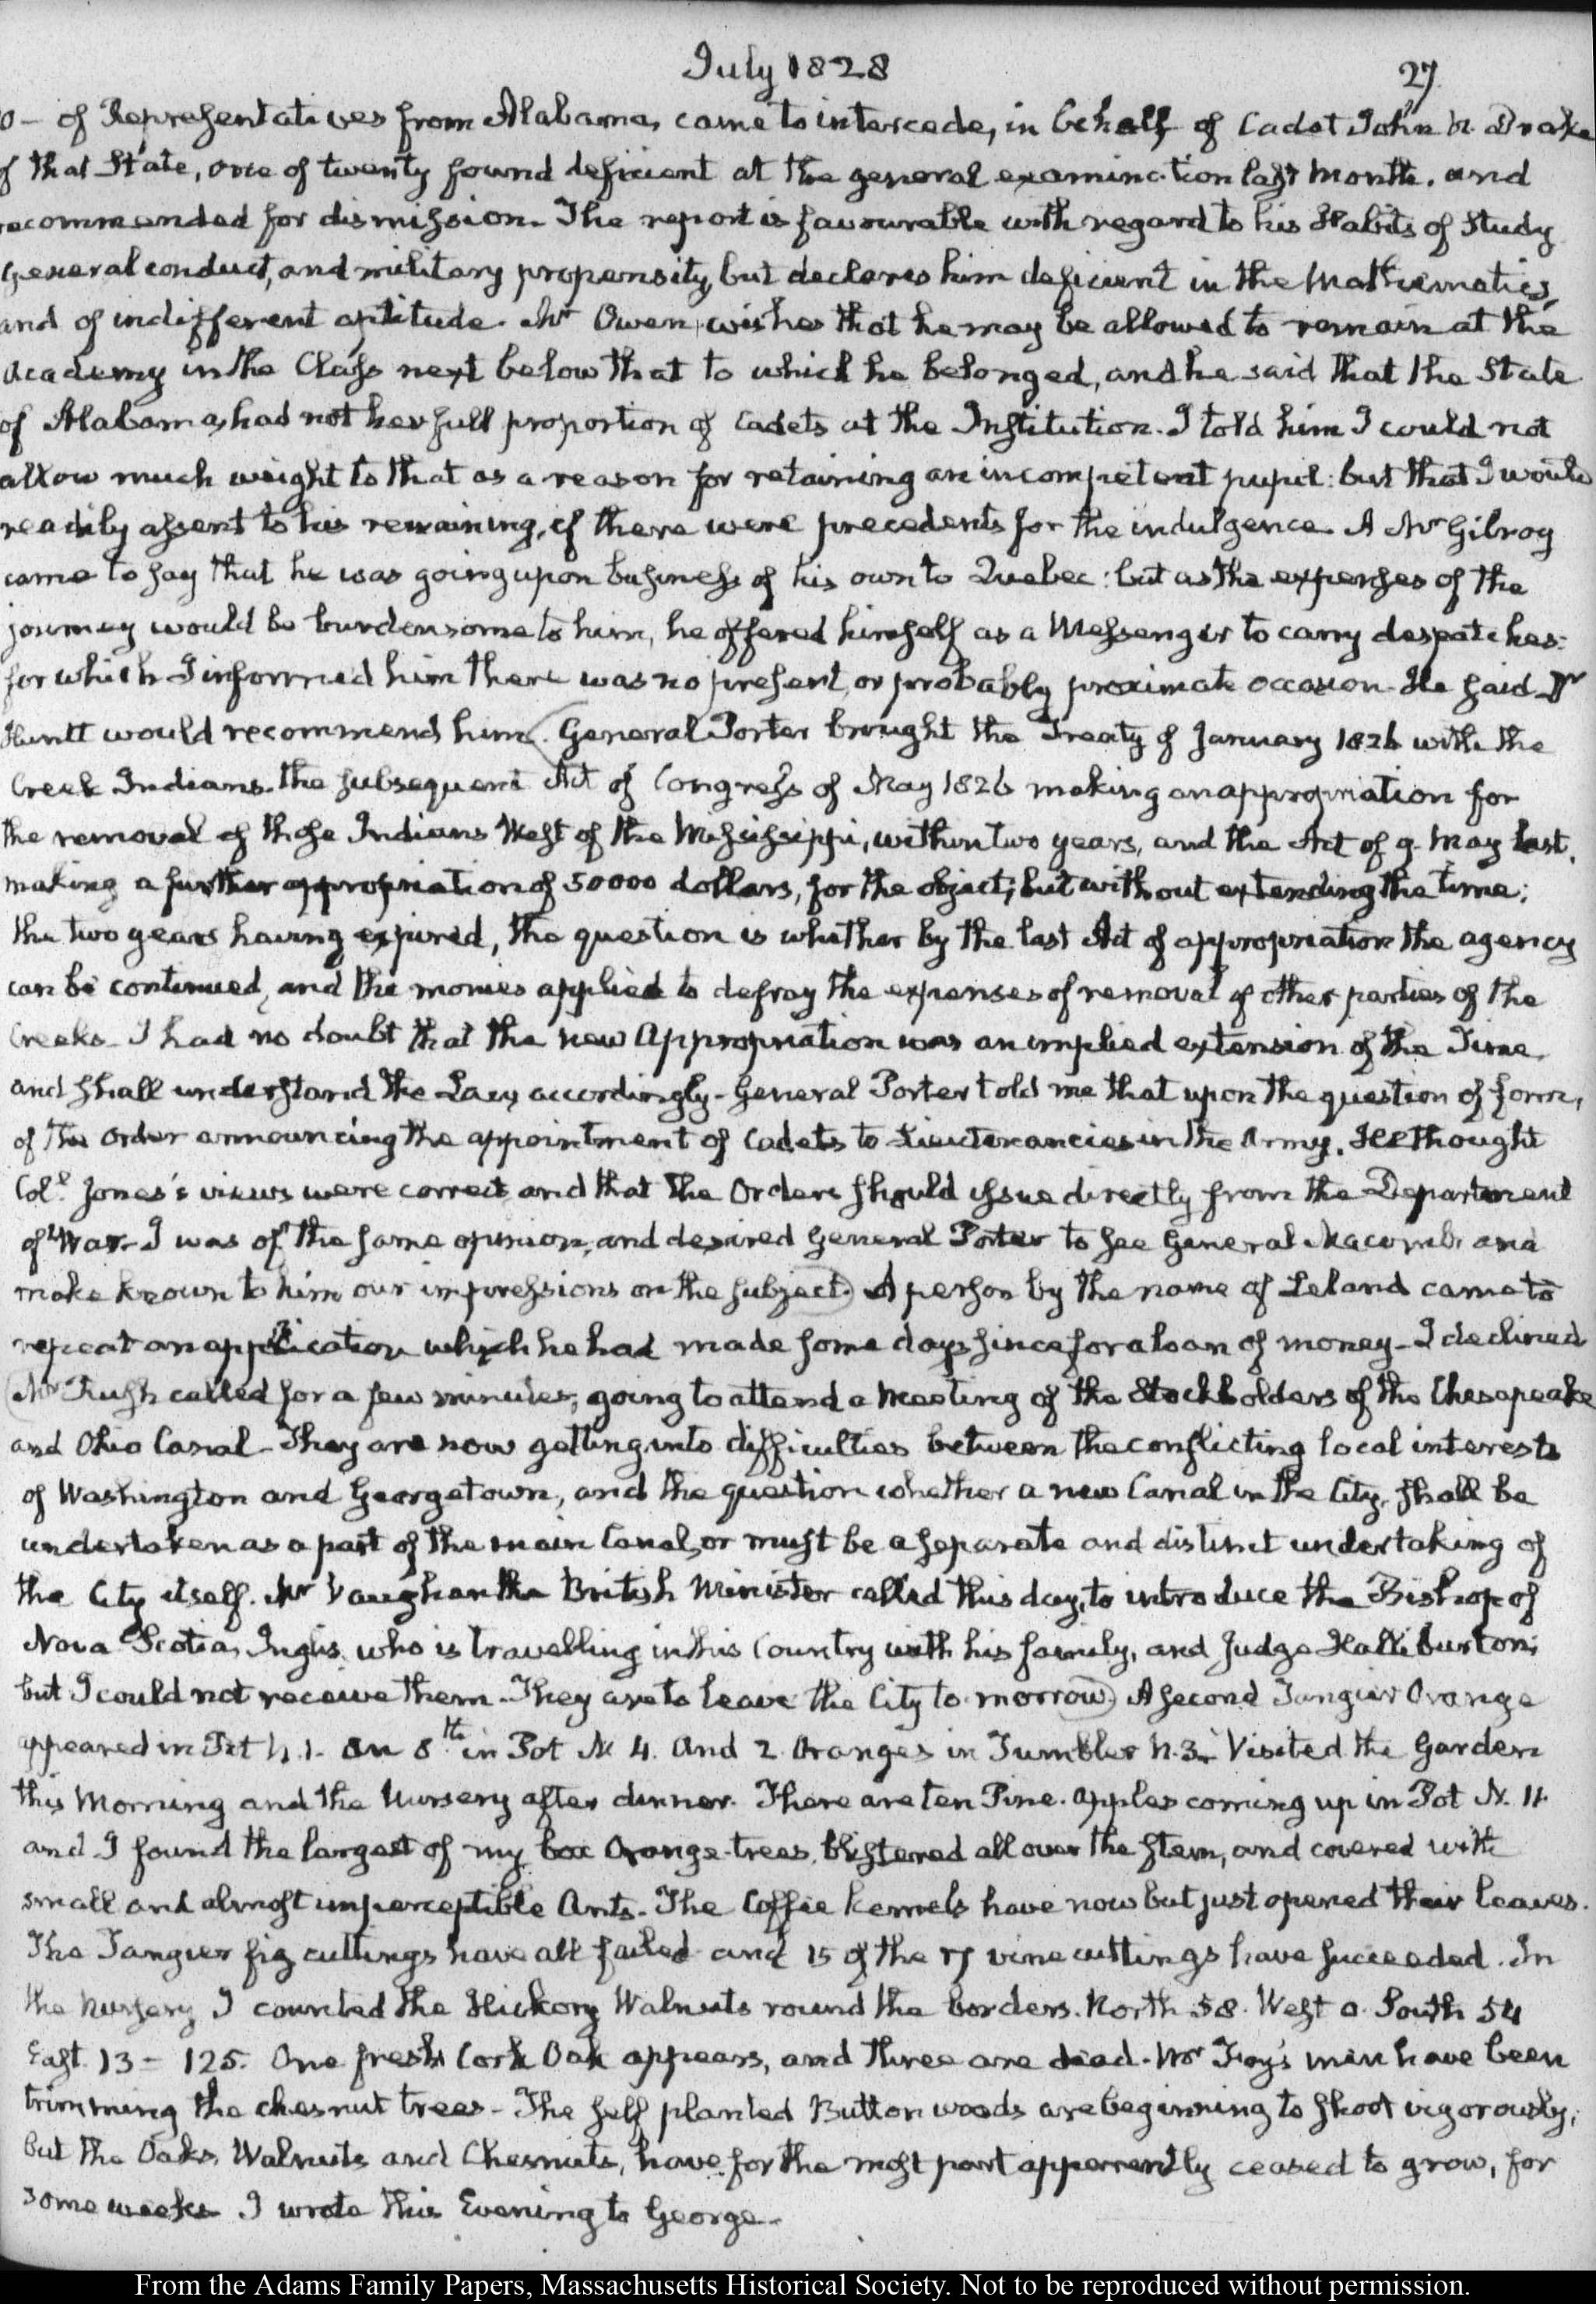 July 1828
27
of Representatives from Alabama, came to intercede, in behalf of Cadet John N. Drake
of that State, one of twenty found deficient at the general examination last Month, and
recommended for dismission. The report is favourable with regard to his Habits of Study
General conduct, and military propensity, but declares him deficient in the Mathematics,
and of indifferent aptitude. Mr Owen, wishes that he may be allowed to remain at the
Academy in the Class next below that to which he belonged, and he said that the State
of Alabama, had not her full proportion of Cadets at the Institution. I told him I could not
allow much weight to that as a reason for retaining an incompetent pupil: but that I would
readily assent to his remaining, if there were precedents for the indulgence. A Mr Gilroy
came to say that he was going upon business of his own to Quebec: but as the expenses of the
journey would be burdensome to him, he offered himself as a Messenger to carry despatches:
for which I informed him there was no present, or probably proximate occasion. He said Dr
Huntt would recommend him. General Porter brought the Treaty of January 1826 with the
Creek Indians. the subsequent Act of Congress of May 1826 making an appropriation for
the removal of those Indians West of the Mississippi, within two years, and the Act of 9. May last.
making a further appropriation of 50000 dollars, for the object; but without extending the time;
the two years having expired, the question is whether by the last Act of appropriation the agency
can be continued, and the monies applied to defray the expenses of removal of other parties of the
Creeks. I had no doubt that the new Appropriation was an implied extension of the Time
and shall understand the Law accordingly. General Porter told me that upon the question of form,
of the Order announcing the appointment of Cadets to Lieutenancies in the Army. He thought
Coll. Jones's views were correct and that the Orders should issue directly from the Department
of War. I was of the same opinion, and desired General Porter to see General Macomb and
make known to him our impressions on the subject. A person by the name of Leland came to
repeat an application which he had made some days since for a loan of money. I declined
Mr Rush called for a few minutes; going to attend a Meeting of the Stockholders of the Chesapeake
and Ohio Canal. They are now getting into difficulties between the conflicting local interests
of Washington and Georgetown, and the question whether a new Canal in the City, shall be
undertaken as a part of the main Canal, or must be a separate and distinct undertaking of
the City itself. Mr Vaughan the British Minister called this day, to introduce the Bishop of
Nova Scotia, Inglis, who is travelling in this Country with his family, and Judge Halliburton;
but I could not receive them. They are to leave the City to-morrow. A second Tangier Orange
appeared in Pot N. 1. an 8th in Pot N. 4. and 2 Oranges in Tumbler N. 3. Visited the Garden
this Morning and the Nursery after dinner. There are ten Pine-apples coming up in Pot N. 11.
and I found the largest of my box Orange-trees, blistered all over the stem, and covered with
small and almost imperceptible Ants. The Coffee kernels have now but just opened their leaves.
The Tangier fig cuttings have all failed and 15 of the 17 vine cuttings have succeeded. In
the Nursery I counted the Hickory Walnuts round the borders. North 58. West 0. South 54
East. 13 - 125. One fresh Cork Oak appears, and three are dead. Mr Foy's men have been
trimming the chesnut trees. The self planted Button woods are beginning to shoot vigorously;
but the Oaks, Walnuts and Chesnuts, have for the most part apparently ceased to grow, for
some weeks. I wrote this Evening to George.
From the Adams Family Papers, Massachusetts Historical Society. Not to be reproduced without permission.